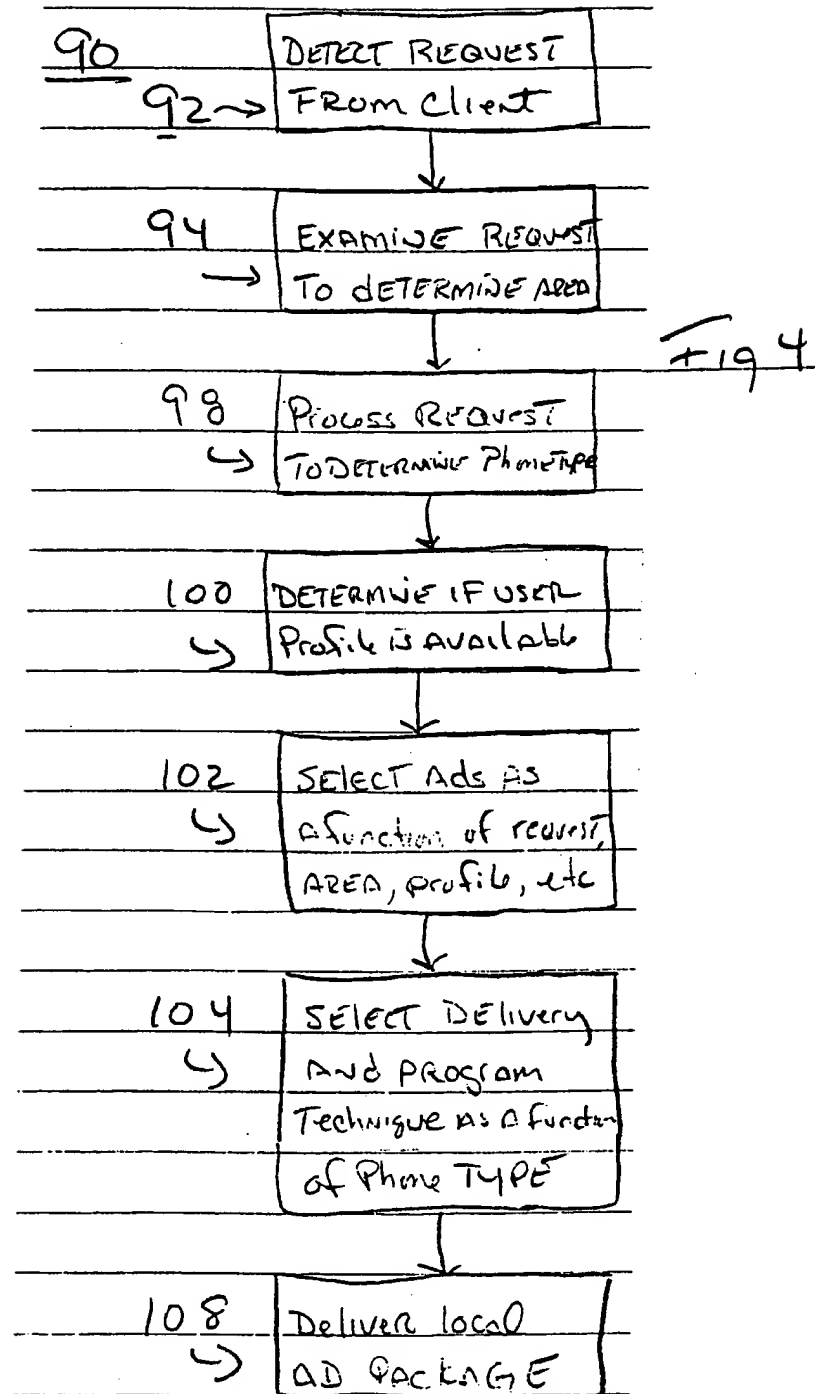 90
DETECT REQUEST
92 → FROM Client
94
EXAMINE REQUEST
TO dETERMINE AREA
Fig 4
98
Process REQUEST
TO DETERMINE Phone TYPE
100
DETERMINE IF USER
Profile is AVAilAble
102
SElECT Ads AS
A function of request,
AREA, profile, etc
104
SElECT DElivery
ANd PROgram
Technique AS A function
of Phone TYPE
108
Deliver local
AD PACKAGE